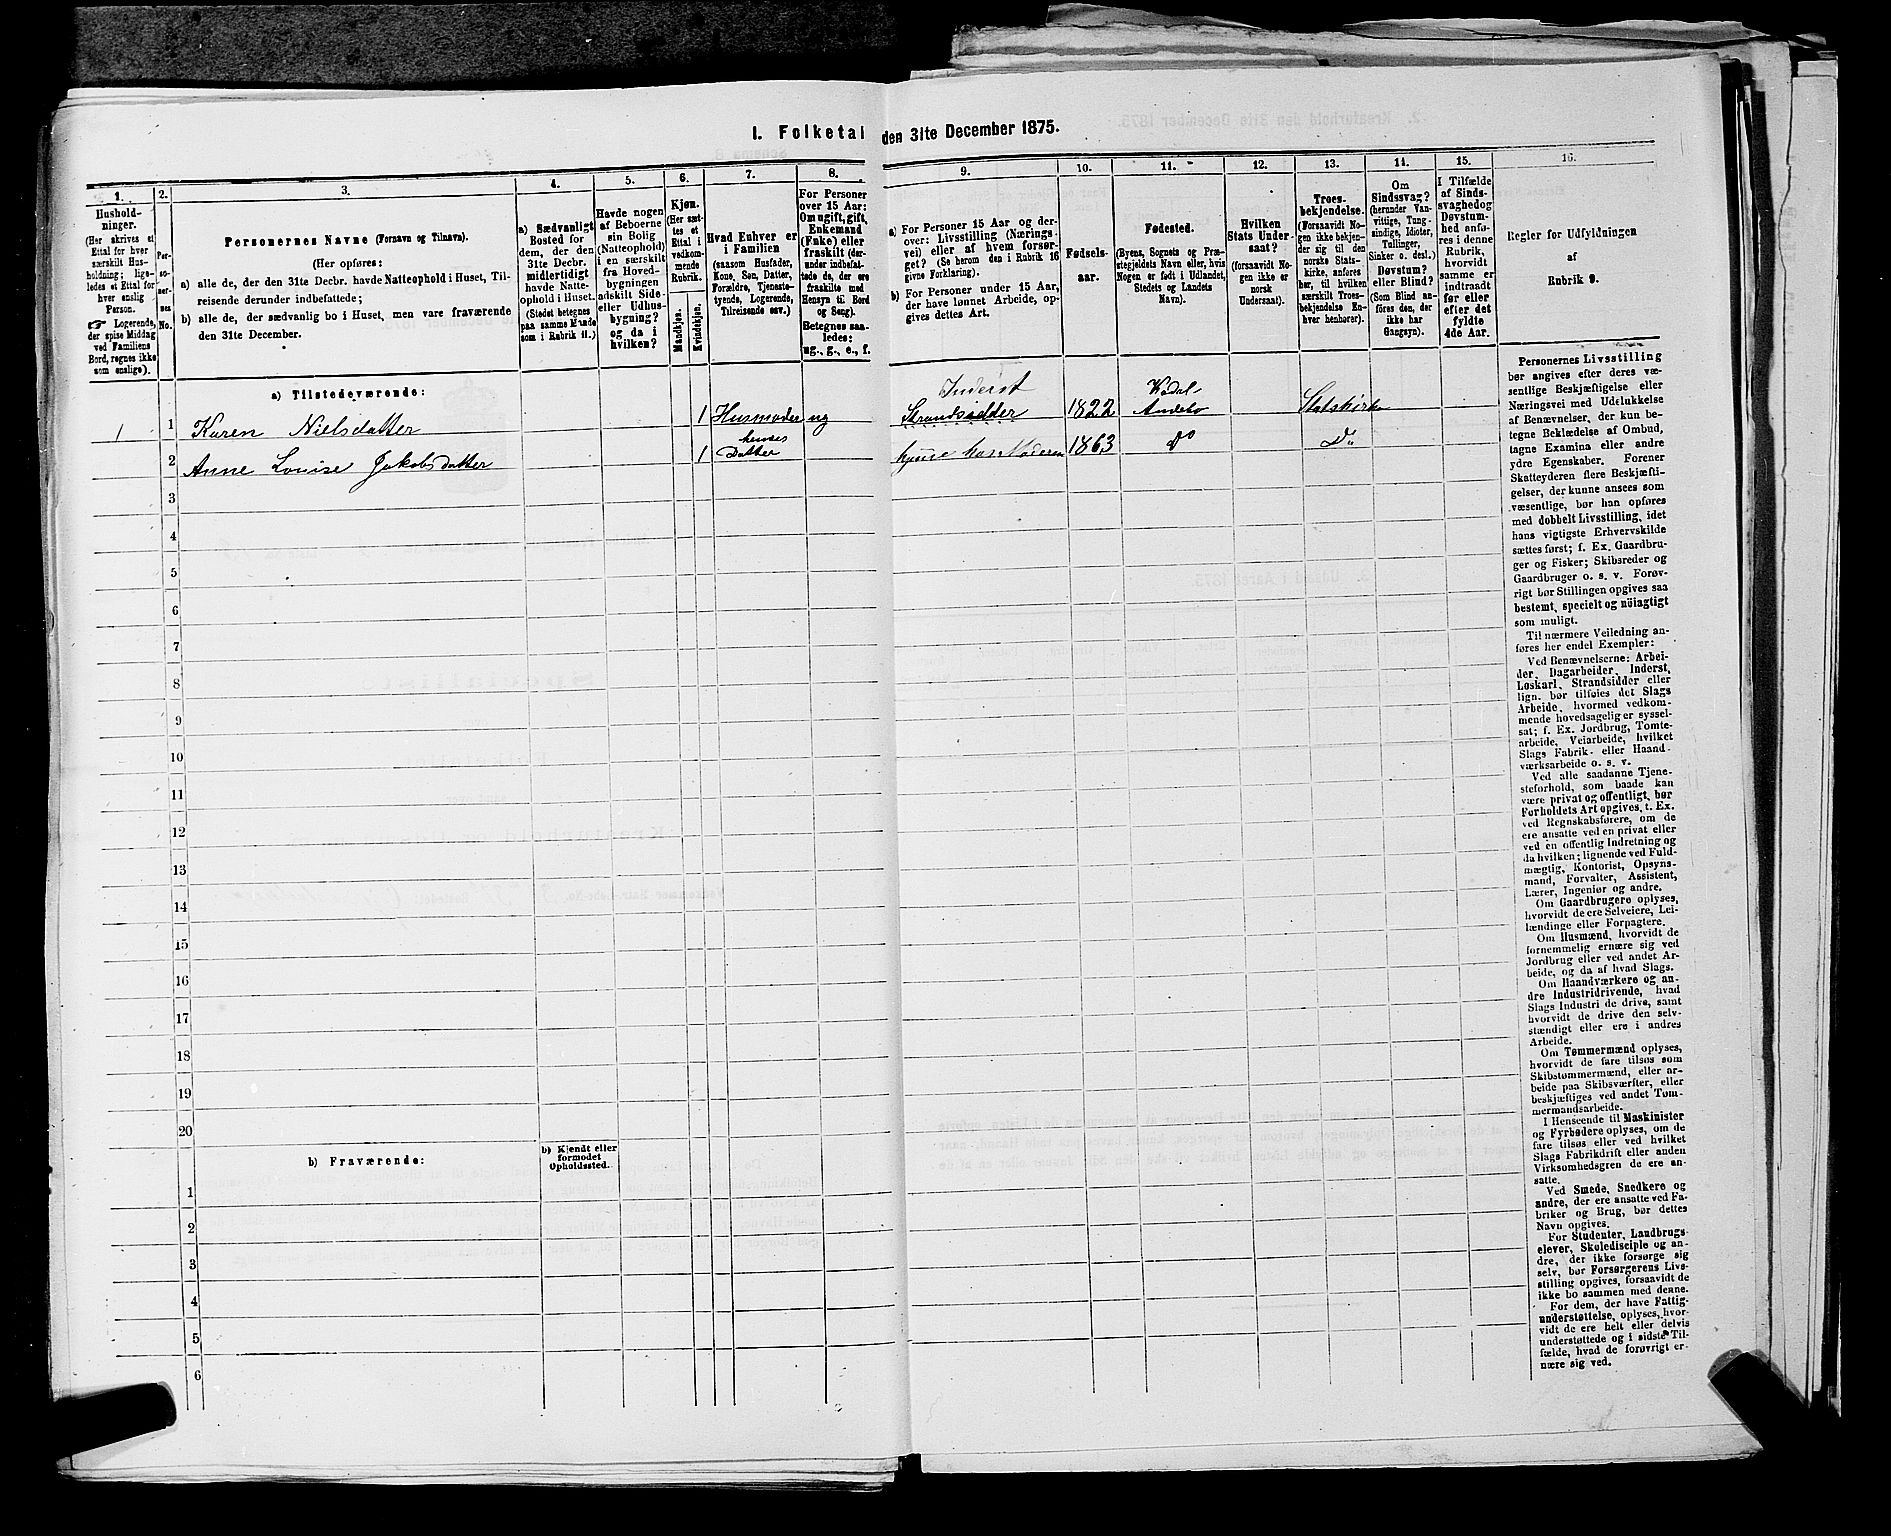 I. Folketal den 31te December 1875.
1. 2. 3. 4. 5. 6. 7. 8. 9. 10. 11. 12. 13. 14. 15. 16.
Hushold-
ninger.
(Her skrives et
Ettal for hver
særskilt Hus-
holdning; lige-
ledes et Ettal for
hver enslig
Person.
☞ Logerende,
der spise Middag
ved Familiens
Bord, regnes ikke
som enslige).
Per-
so-
ner-
nes
No.
Personernes Navne (Fornavn og Tilnavn).
(Her opføres:
a) alle de, der den 31te Decbr. havde Natteophold i Huset, Til-
reisende derunder indbefattede;
b) alle de, der sædvanlig bo i Huset, men vare fraværende
den 31te December.
a) Sædvanligt
Bosted for
dem, der den
31te Decbr.
midlertidigt
havde Natte-
ophold i Huset.
(Stedet betegnes
paa samme Maade
som i Rubrik 11.)
Havde nogen
af Beboerne
sin Bolig
(Natteophold)
i en særskilt
fra Hoved-
bygningen
adskilt Side-
eller Udhus-
bygning?
og da i
hvilken?
Kjøn.
(Her sæt-
tes et
Ettal i
vedkom-
mende
Rubrik.
Mandkjøn.
Kvindekjøn.
Hvad Enhver er
i Familien
(saasom Husfader,
Kone, Søn, Datter,
Forældre, Tjeneste-
tyende, Logerende,
Tilreisende osv.)
For Personer
over 15 Aar:
Om ugift, gift,
Enkemand
(Enke) eller
fraskilt (der-
under indbefat-
tede de, der ere
fraskilte med
Hensyn til Bord
og Seng).
Betegnes saa-
ledes:
ug., g., e., f.
a) For Personer 15 Aar og der-
over: Livsstilling (Nærings-
vei) eller af hvem forsør-
get? (Se herom den i Rubrik 16
givne Forklaring).
b) For Personer under 15 Aar,
der have lønnet Arbeide, op-
gives dettes Art.
Fødsels-
aar.
Fødested.
(Byens, Sognets og Præ-
stegjeldets Navn eller, hvis
Nogen er født i Udlandet,
Stedets og Landets
Navn).
Hvilken
Stats Under-
saat?
(forsaavidt No-
gen ikke er
norsk
Undersaat).
Troes-
bekjendelse.
(Forsaavidt No-
gen ikke bekjen-
der sig til den
norske Stats-
kirke, anføres
her, til hvilken
særskilt Troes-
bekjendelse En-
hver henhører).
Om
Sindssvag?
(herunder Van-
vittige, Tung-
sindige, Idioter,
Tullinger,
Sinker o. desl.)
Døvstum?
eller Blind?
(Som Blind an-
føres den, der
ikke har
Gangsyn).
I Tilfælde
af Sinds-
svaghed og
Døvstum-
hed anfø-
res i denne
Rubrik,
hvorvidt
samme er
indtraadt
før eller
efter det
fyldte
4de Aar.
Regler for Udfyldningen
af
Rubrik 9.
a) Tilstedeværende:
Inderst Kodal-
1 1 Karen Nielsdatter 1 Husmoder ug Strandsidder 1822 Andebo Statskirke
2 Anne Louise Jakobsdatter 1 hendes Datter hjme hos Moderen 1863 Do Do
3
4
5
6
7
8
9
10
11
12
13
14
15
16
17
18
19
20
b) Fraværende:
b) Kjendt eller
formodet
Opholdssted.
1
2
3
4
5
6
Personernes Livsstilling
bør angives efter deres væ-
sentlige Beskjæftigelse eller
Næringsvei med Udelukkelse
af Benævnelser, der kun be-
tegne Beklædelse af Ombud,
tagne Examina eller andre
ydre Egenskaber. Forener
Skatteyderen flere Beskjæfti-
gelser, der kunne ansees som
væsentlige, bør han opføres
med dobbelt Livsstilling, idet
hans vigtigste Erhvervskilde
sættes først; f. Ex. Gaardbru-
ger og Fisker; Skibsreder og
Gaardbruger o. s. v. Forøv-
rigt bør Stillingen opgives saa
bestemt, specielt og nøiagtigt
som muligt.
Til nærmere Veiledning an-
føres her endel Exempler:
Ved Benævnelserne: Arbei-
der, Dagarbeider, Inderst,
Løskarl, Strandsidder eller
lign. bør tilføies det Slags
Arbeide, hvormed vedkom-
mende hovedsagelig er syssel-
sat; f. Ex. Jordbrug, Tomte-
arbeide, Veiarbeide, hvilket
Slags Fabrik- eller Haand-
værksarbeide o. s. v.
Ved alle saadanne Tjene-
steforhold, som baade kan
være privat og offentligt, bør
Forholdets Art opgives, t. Ex.
ved Regnskabsførere, om de
ere ansatte ved en privat eller
ved en offentlig Indretning og
da hvilken; lignende ved Fuld-
mægtig, Kontorist, Opsyns-
mand, Forvalter, Assistent,
Lærer, Ingeniør og andre.
Om Gaardbrugere oplyses,
hvorvidt de ere Selveiere, Lei-
lændinge eller Forpagtere.
Om Husmænd, hvorvidt de
fornemmelig ernære sig ved
Jordbrug eller ved andet Ar-
beide, og da af hvad Slags.
Om Haandværkere og an-
dre Industridrivende, hvad
Slags Industri de drive, samt
hvorvidt de drive den selv-
stændigt eller ere i andres
Arbeide.
Om Tømmermænd oplyses,
hvorvidt de fare tilsøs som
Skibstømmermænd, eller ar-
beide paa Skibsværfter, eller
beskjæftiges ved andet Tøm-
mermandsarbeide.
I Henseende til Maskinister
og Fyrbødere oplyses, om de
fare tilsøs eller ved hvilket
Slags Fabrikdrift eller anden
Virksomhedsgren de ere an-
satte.
Ved Smede, Snedkere og
andre, der ere ansatte ved Fa-
briker og Brug, bør dettes
Navn opgives.
For Studenter, Landbrugs-
elever, Skoledisciple og an-
dre, der ikke forsørge sig
selv, bør Forsørgerens Livs-
stilling opgives, forsaavidt de
ikke bo sammen med denne.
For dem, der have Fattig-
understøttelse, oplyses, hvor-
vidt de ere helt eller delvis
understøttede og i sidste Til-
fælde, hvad de forøvrigt er-
nære sig ved.